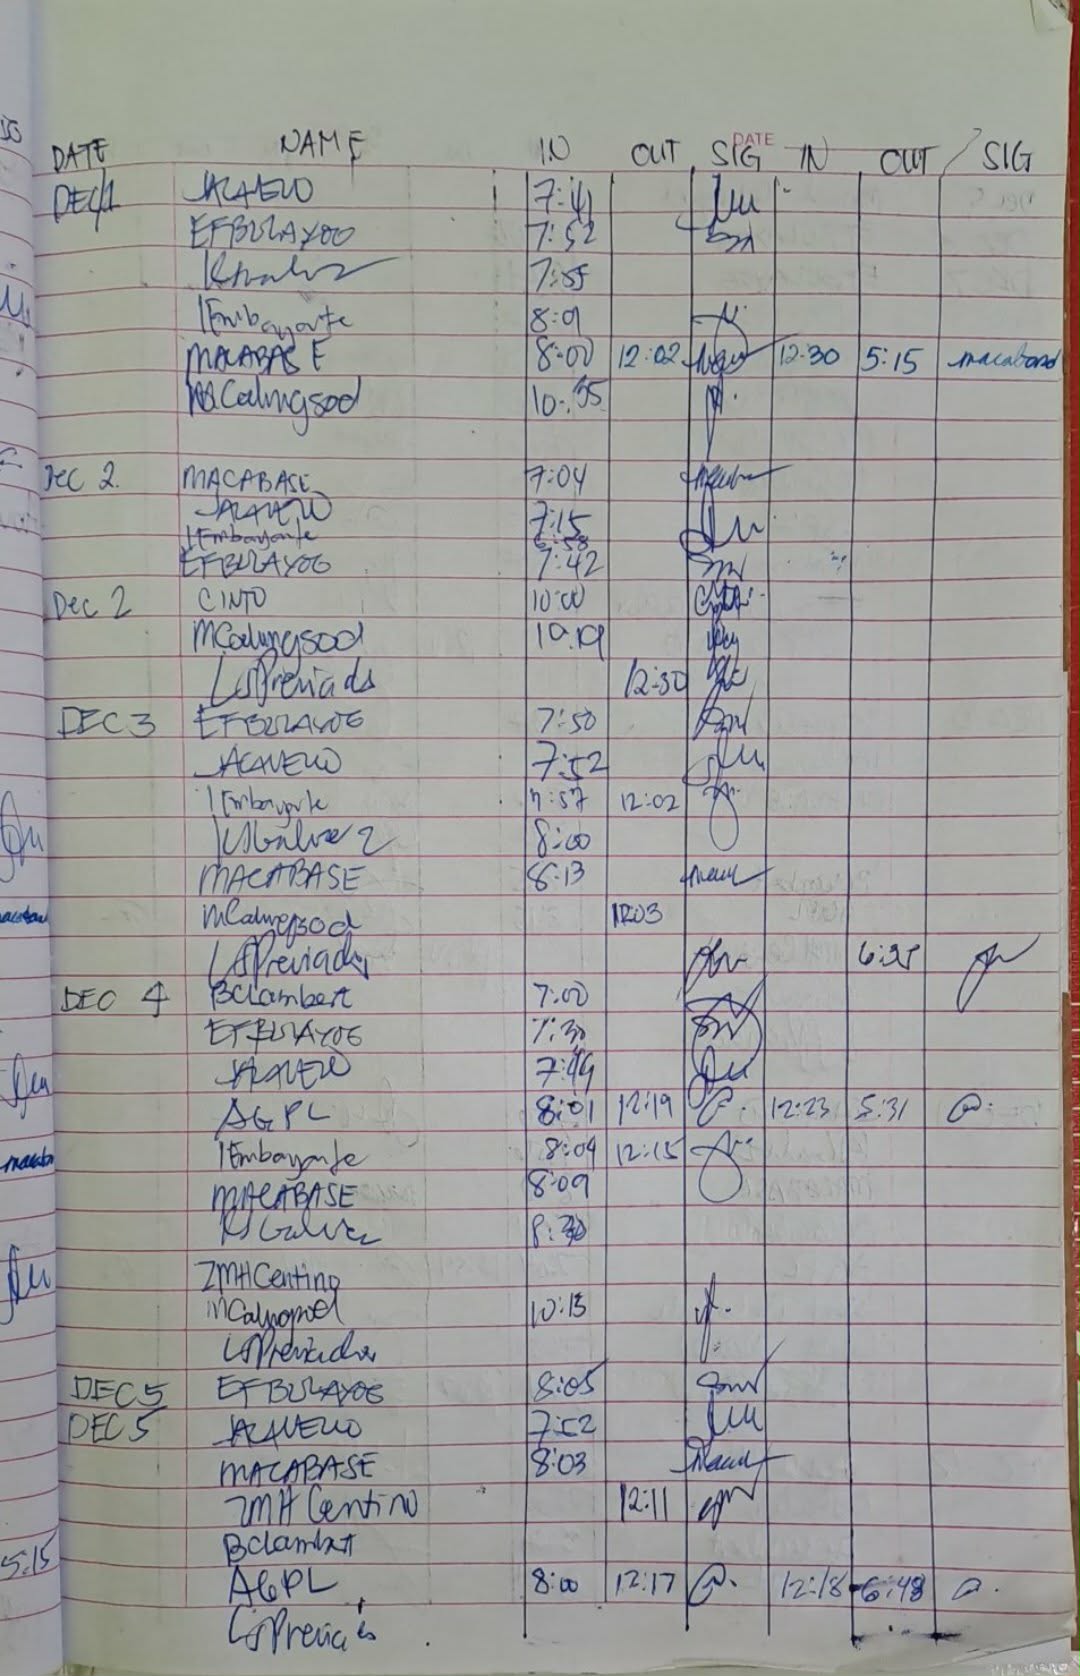 DATE NAME IN OUT SIG DATE IN OUT SIG
DEC 1 JACAVELLO 7:41
EFBULAYOG 7:52
7:55
IEmbayante 8:01
MACABASE 8:00 12:02 12:30 5:15
MCalungsod 10:35
Dec 2 MACABASE 7:04
JACAVELLO 7:15
IEmbayante 6:58
EFBULAYOG 7:42
Dec 2 CINTO 10:00
MCalungsod 10:19
LSPreviados 12:30
DEC 3 EFBULAYOG 7:50
JACAVELLO 7:52
IEmbayante 7:57 12:02
KSGalvez 8:00
MACABASE 8:13
MCalungsod 11:03
LSPreviados 6:35
DEC 4 BClambert 7:00
EFBULAYOG 7:30
JACAVELLO 7:49
AGPL 8:01 12:19 12:23 5:31
IEmbayante 8:04 12:15
MACABASE 8:09
KSGalvez 8:30
ZMHCentino
MCalungsod 10:13
LSPreviados
DEC 5 EFBULAYOG 8:05
DEC 5 JACAVELLO 7:52
MACABASE 8:03
ZMHCentino 12:11
BClambert
5:15
AGPL 8:00 12:17 12:18 6:48
LSPreviados